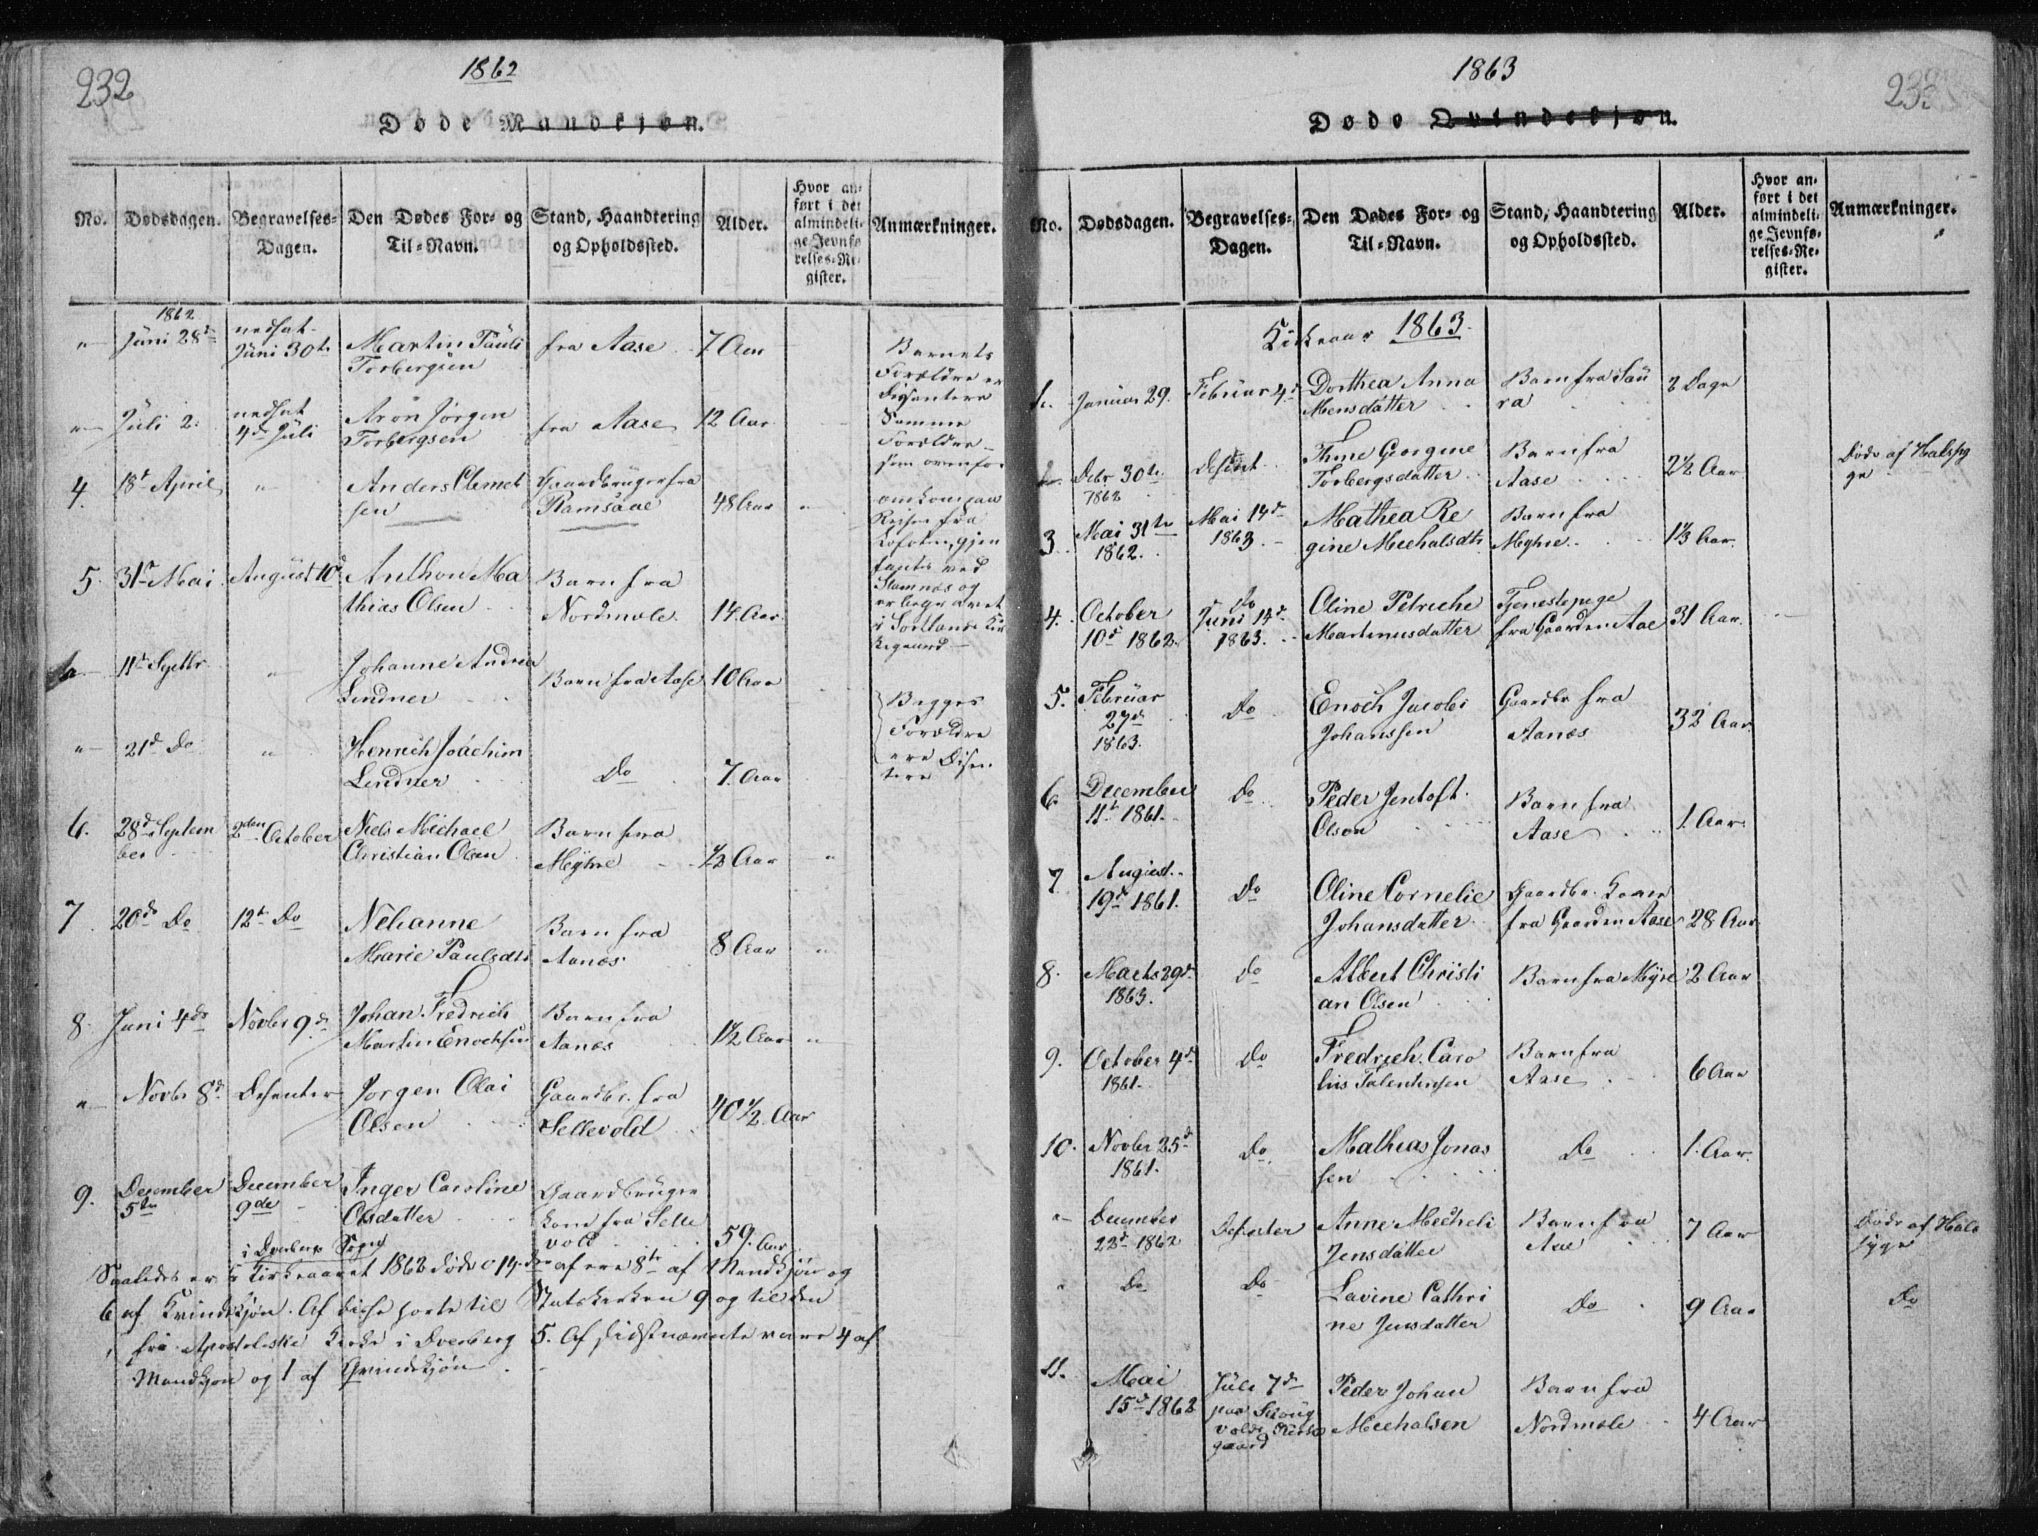 232
1862
Døde Mandkjøn.
No.
Dødsdagen.
Begravelses-
Dagen.
Den Dødes For- og
Til-Navn.
Stand, Haandtering
og Opholdssted.
Alder.
Hvor an-
ført i det
almindeli-
ge Jevnfø-
relses-Re-
gister.
Anmærkninger.
1862
" Juni 28de
nedsat
Juni 30te
Martin Pauli
Torbergsen
fra Aase
7 Aar
Barnets
Forældre er
Disentere
" Juli 2.
nedsat
4de Juli
Aron Jørgen
Torbergsen
fra Aase
12 Aar
Samme
Forældre
som ovenfor
4.
18d April
"
Anders Clemet
sen
Gaardbruger fra
Ramsaae
48 Aar
"
omkom paa
Reisen fra
Lofoten, gjen
fantes ved
Stamnæs og
er begravet
i Sortlands Kir
kegaard
5.
31te Mai
August 10d
Anthon Ma
thias Olsen
Barn fra
Nordmele
14. Aar
11te Septbr
"
Johanne Andrea
Lindner
Barn fra Aase
10 Aar
Begges
Forældre
ere Disen
tere
"
21d Do
"
Henrich Joachim
Lindner
Do
7. Aar
6.
28de Septem
ber
2den October
Niels Michael
Christian Olsen
Barn fra
Myhre
1/2 Aar
"
7
20de Do
12te Do
Nehanne
Marie Paulsdtr
Barn fra
Aanes
8 Aar
"
8.
Juni 4de
Novbr 9de
Johan Fredrich
Martin Enochsen
Barn fra
Aanes
1 1/2 Aar
"
"
Novbr 8d
Desenter
Jørgen Olai
Olsen
Gaardbr. fra
Sellevold
40 1/2 Aar
9.
December
5te
December
9de
Inger Caroline
Olsdatter
Gaardbruger
kone fra Selle
vold
59. Aar
i Dverbergs Sogn
Saaledes er i Kirkeaaret 1862 døde 14, deraf ere 8te af Mandkjøn og
6 af Kvindekjøn. Af disse hørte til Statskirken 9 og til den
fri Apostoliske Kirke i Dverberg 5. Af sidstnævnte vare 4 af
Mandkjøn og 1 af Qvindekjøn.
1863
233
Døde Qvindekjøn.
No.
Dødsdagen.
Begravelses-
Dagen.
Den Dødes For- og
Til-Navn.
Stand, Haandtering
og Opholdssted.
Alder.
Hvor an-
ført i det
almindeli-
ge Jevnfø-
relses-Re-
gister.
Anmærkninger.
Kirkeaar 1863.
1.
Januar 29.
Februar 4d
Dorthea Anna
Mensdatter
Barn fra Sau
ra
2 Dage
Debr 30te
1862
Desent.
Thine Georgine
Torbergsdatter
Barn fra
Aase
2 1/2 Aar
Døde af Halssy
ge
3
Mai 31te
1862.
Mai 14de
1863.
Mathea Re
gine Mechalsdtr
Barn fra
Myhre
1 1/3 Aar.
4.
October
10d 1862.
Do
Juni 14d
1863.
Oline Petriche
Martinusdatter
Tjenestepige
fra Gaarden Aae
31 Aar.
5.
Februar
27d
1863.
Do
Enoch Jacobs
Johanssen
Gaardbr fra
Aanes
32 Aar.
6
December
11te 1861.
Do
Peder Jentoft
Olsen
Barn fra
Aase
1. Aar.
7
August
19de 1861.
Do
Oline Cornelie
Johansdatter
Gaardbr. Kone
fra Gaarden Aase
28 Aar
8.
Marts 29de
1863.
Do
Albert Christi
an Olsen
Barn fra Myre
2 Aar
9.
October 4d
1861.
Do
Fredrich Caro
lius Talentinsen
Barn fra
Aase
6 Aar
10.
Novbr 25d
1861.
Do.
Mathias Jonas
sen
Do
1. Aar.
"
December
22d 1862
Desenter
Anne Mecheli
Jensdatter
Barn fra
Aae
7 Aar
Døde af Hals
syge
"
Do
Do
Lavine Cathri
ne Jensdatter
Do
9 Aar
Do
11.
Mai
15d 1862
Juli 7de
paa Skoug
volds Kirke
gaard
Peder Johan
Mechalsen
Barn fra
Nordmele
4 Aar